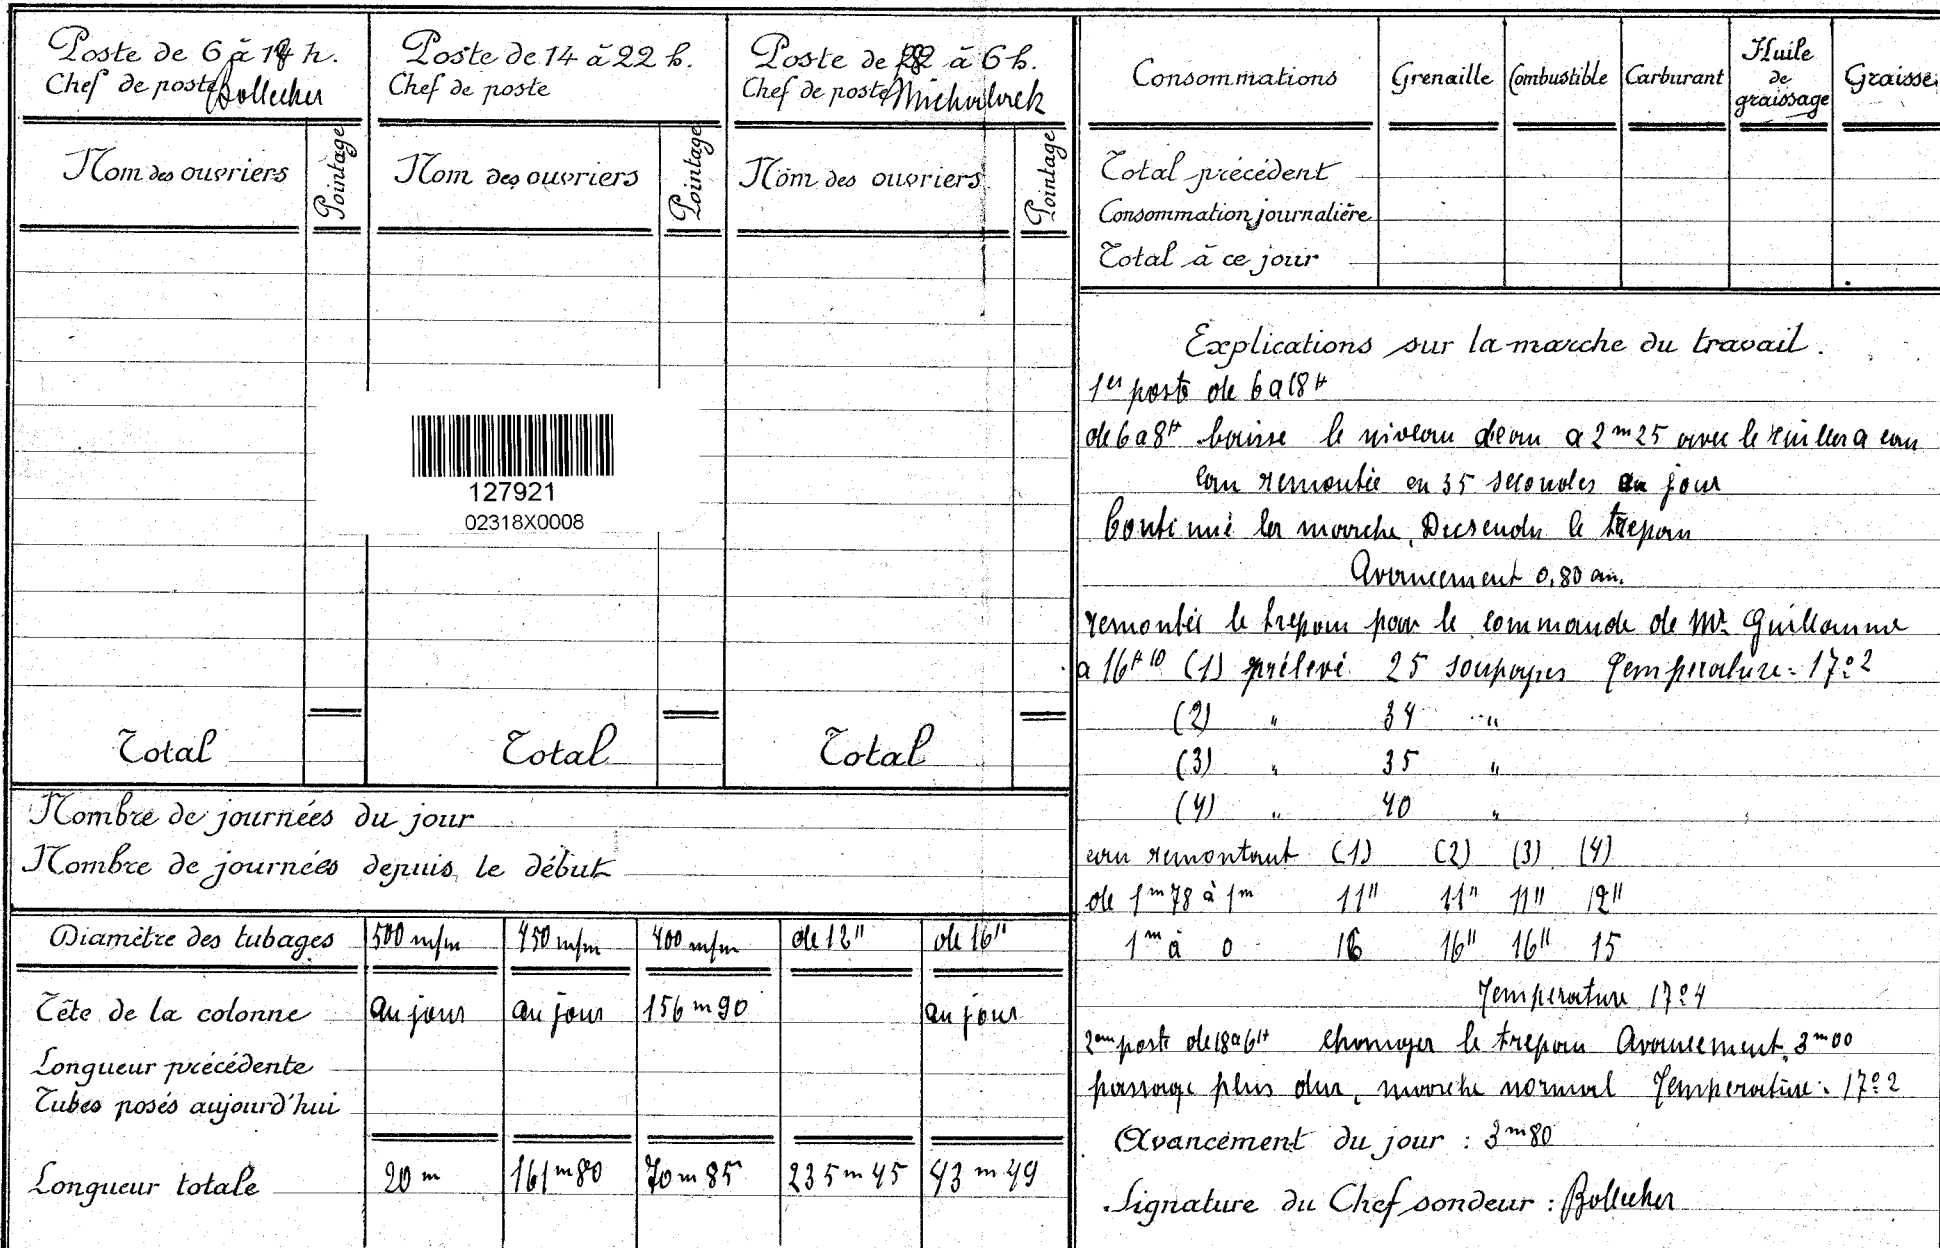 Poste de 6 à 18 h.
Chef de poste Bollecker
Nom des ouvriers
Pointage
Total
Poste de 14 à 22 h.
Chef de poste
Nom des ouvriers
Pointage
Total
Poste de 18 à 6 h.
Chef de poste
Nom des ouvriers
Pointage
Total
127921
02318X0008
Nombre de journées du jour
Nombre de journées depuis le début
Diamètre des tubages 500 m/m 450 m/m 400 m/m de 12" de 16"
Tête de la colonne au jour au jour 156 m 90 au jour
Longueur précédente
Tubes posés aujourd'hui
Longueur totale 20 m 161 m 80 70 m 85 235 m 45 43 m 49
Consommations Grenaille Combustible Carburant Huile de graissage Graisse
Total précédent
Consommation journalière
Total à ce jour
Explications sur la marche du travail.
1er poste de 6 a 18 H
de 6 a 8 H baisse le niveau deau a 2 m 25 avec le a eau
eau remontée en 35 secondes au jour
Continué la marche, Descendu le trepan
Avancement 0,80 cm.
remontée le trepan par le commande de Mr. Guillaume
a 16 H 10 (1) prélevé 25 soupapes Temperature = 17°2
(2) " 34 "
(3) " 35 "
(4) " 40 "
eau remontant (1) (2) (3) (4)
de 1 m 78 à 1 m 11" 11" 11" 12"
1 m à 0 16 16" 16" 15
Temperature 17°4
2em poste de 18 a 6 H changer le trepan Avancement, 3 m 00
passage plus dur, marche normal Temperature: 17°2
Avancement du jour : 3 m 80
Signature du Chef sondeur : Bollecker